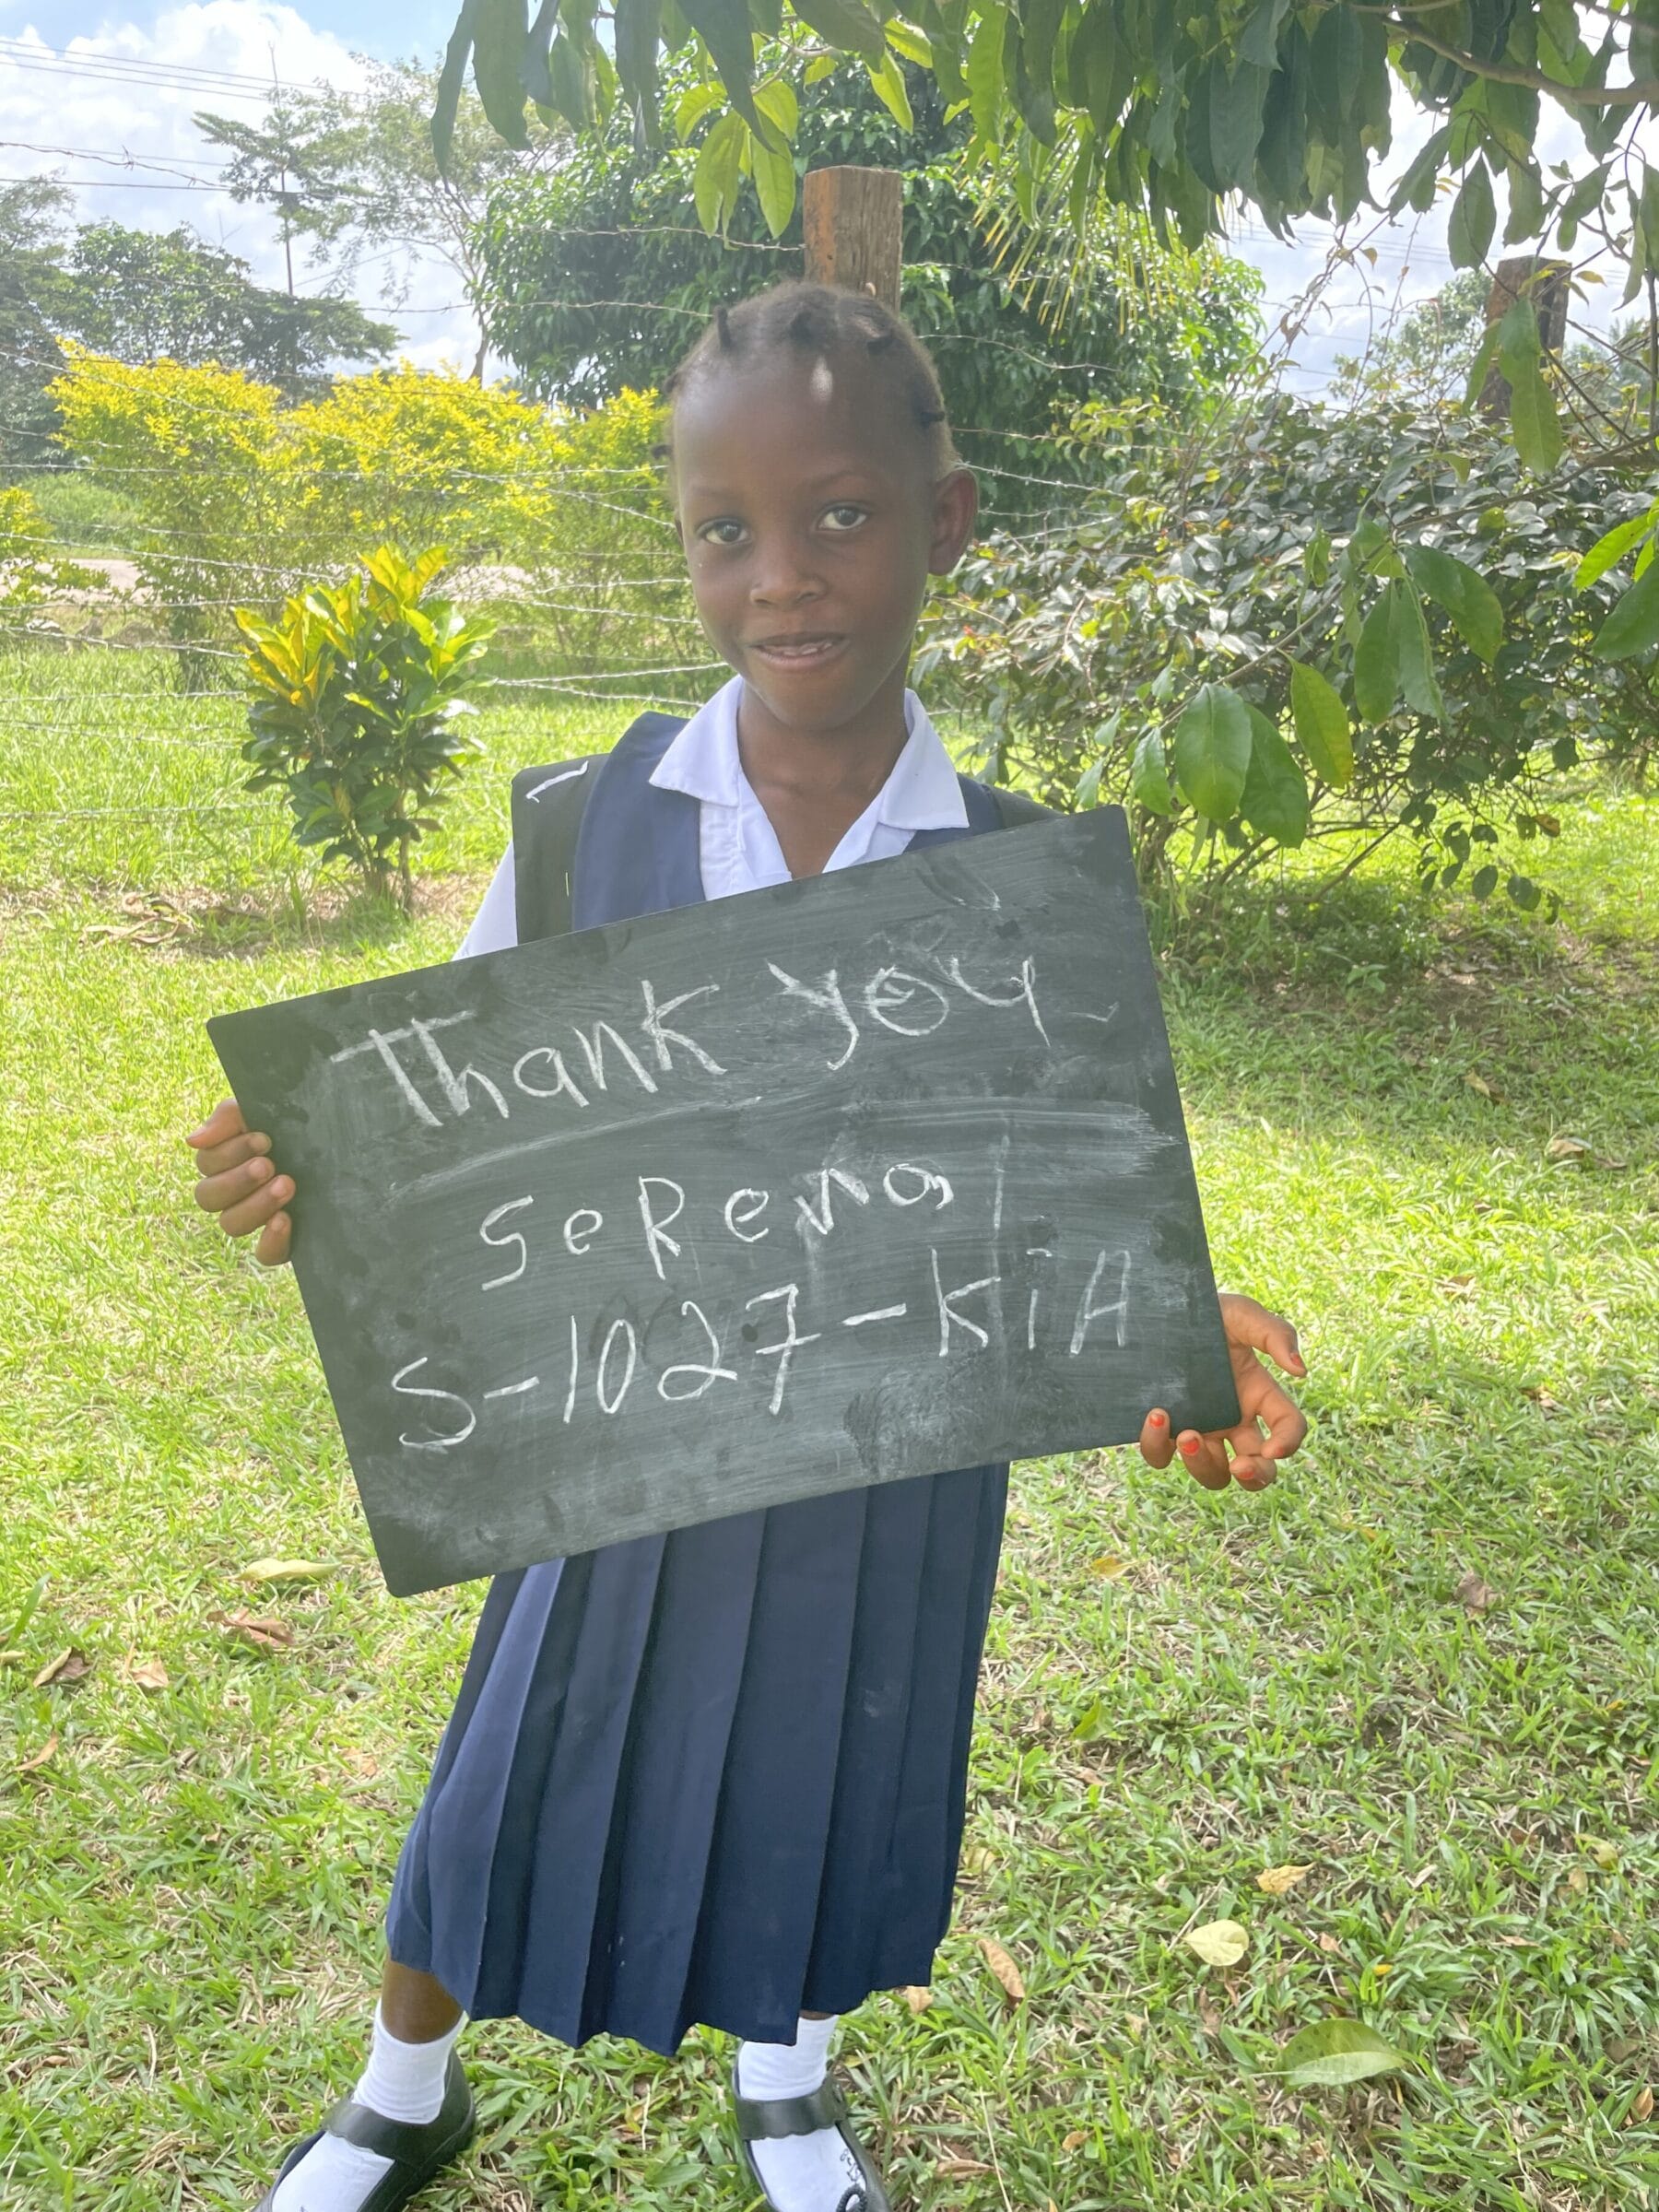 Thank you
SeRena
S-1027-KiA